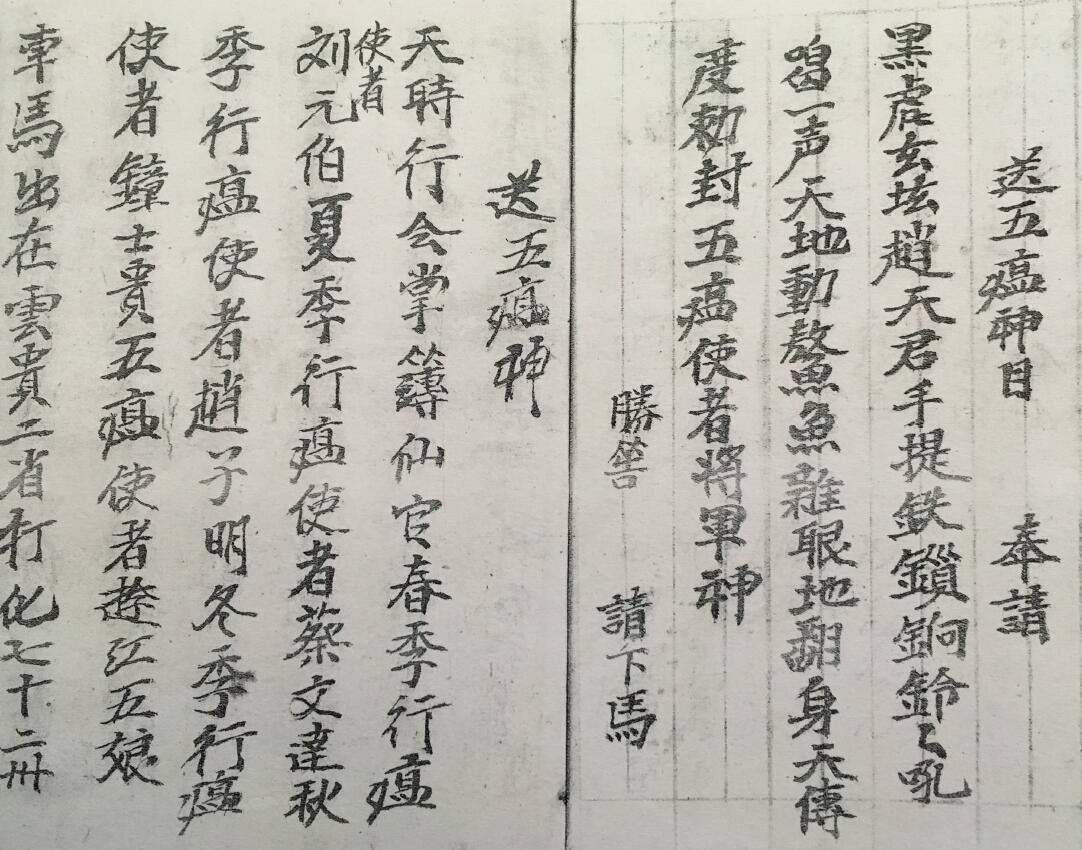 送五瘟神日 奉請
黑虎玄坛趙天君手提鉄鎖銅鈴々吼
唱一声天地動鰲魚魚雜眼地翻身天傳
度勅封五瘟使者將軍神
勝筶 請下馬
送五瘟神
天時行会掌簿仙官春季行瘟
使者
刘元伯夏季行瘟使者蔡文達秋
季行瘟使者趙子明冬季行瘟
使者鐘士貴五瘟使者江五娘
車馬出在雲貴二省打化七十二州